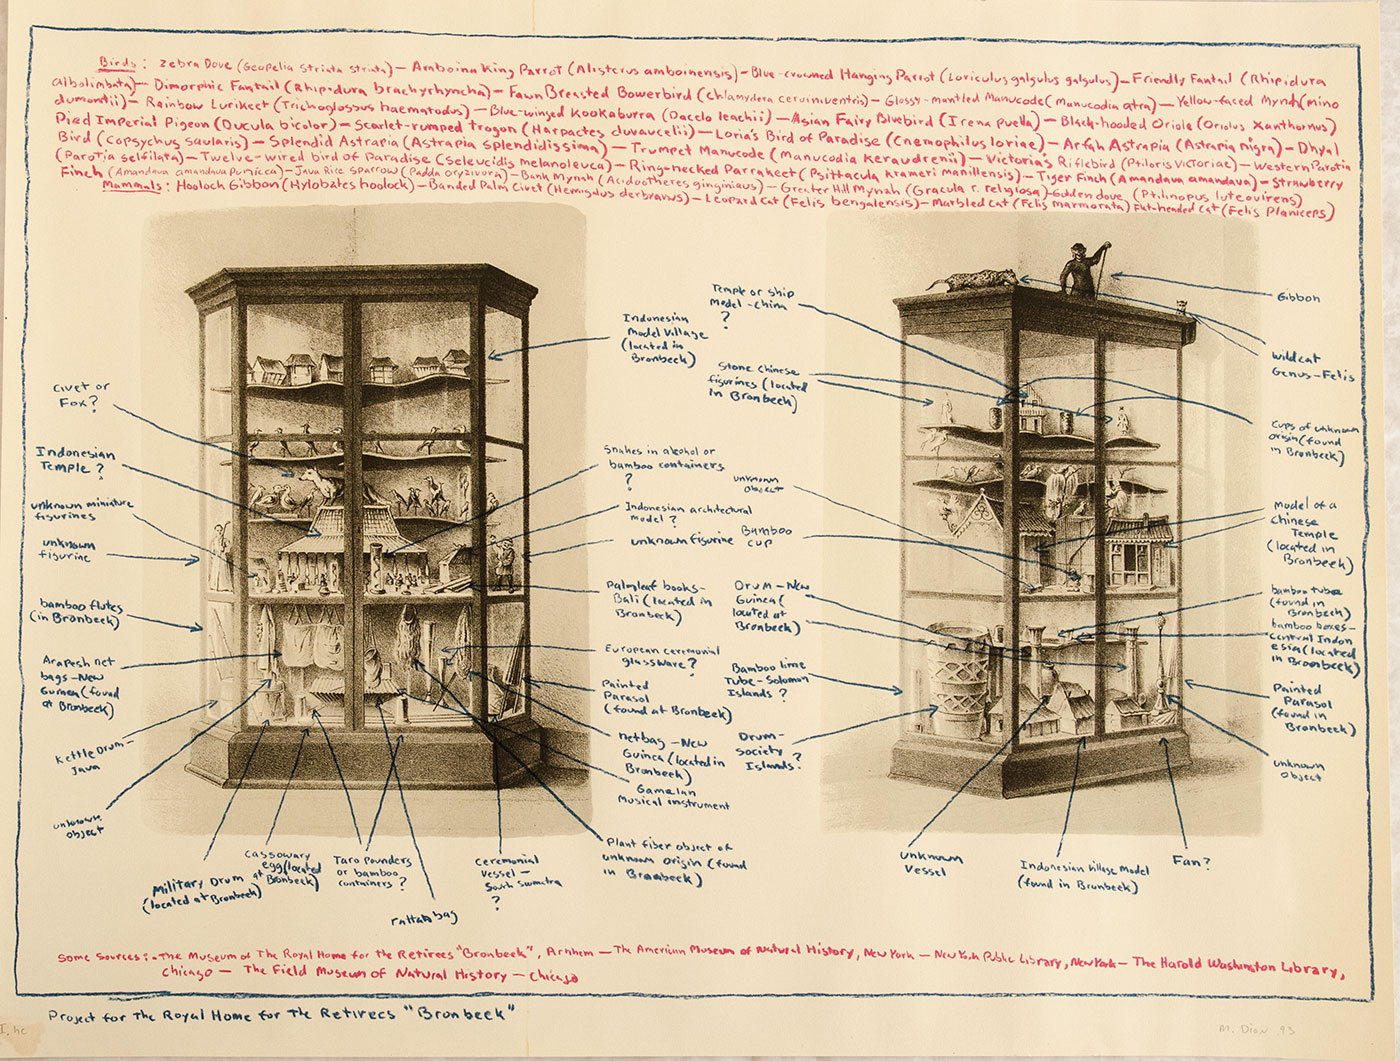 Birds: Zebra Dove (Geopelia Striata striata) – Amboina King Parrot (Alisterus amboinensis) – Blue-crowned Hanging Parrot (Loriculus galgulus galgulus) – Friendly Fantail (Rhipidura
albolimbata) – Dimorphic Fantail (Rhipidura brachyrhyncha) – Fawn Breasted Bowerbird (Chlamydera cerviniventris) – Glossy-mantled Manucode (Manucodia atra) – Yellow-faced Mynah (mino
dumontii) – Rainbow Lurikeet (Trichoglossus haematodus) – Blue-winged Kookaburra (Dacelo leachii) – Asian Fairy Bluebird (Irena puella) – Black-hooded Oriole (Oriolus Xanthornus)
Pied Imperial Pigeon (Ducula bicolor) – Scarlet-rumped Trogon (Harpactes duvaucelii) – Loria's Bird of Paradise (Cnemophilus loriae) – Arfah Astrapia (Astrapia nigra) – Dhyal
Bird (Copsychus saularis) – Splendid Astrapia (Astrapia splendidissima) – Trumpet Manucode (Manucodia keraudrenii) – Victoria's Riflebird (Ptiloris Victoriae) – Western Parotia
(Parotia selfilata) – Twelve-wired bird of Paradise (Seleucidis melanoleuca) – Ring-necked Parrakeet (Psittacula krameri manillensis) – Tiger Finch (Amandava amandava) – Strawberry
Finch (Amandava amandava punicca) – Java Rice Sparrow (Padda oryzivora) – Bank Mynah (Acidotheres ginginiaus) – Greater Hill Mynah (Gracula r. religiosa) – Golden dove (Ptilinopus luteovirens)
Mammals: Hooloch Gibbon (Hylobates hoolock) – Banded Palm Civet (Hemigalus derbyanus) – Leopard Cat (Felis bengalensis) – Marbled Cat (Felis marmorata) Flat-headed Cat (Felis Planiceps)
Civet or
Fox?
Indonesian
Temple?
unknown miniature
figurines
unknown
figurine
bamboo flutes
(in Bronbeek)
Arapesh net
bags – New
Guinea (found
at Bronbeek)
Kettle Drum –
Java
unknown
object
Military Drum
(located at Bronbeek)
Cassowary
egg (located
at Bronbeek)
Taro Pounders
or bamboo
containers?
rattan bag
Ceremonial
Vessel –
South Sumatra
?
Indonesian
Model Village
(located in
Bronbeek)
Snakes in alcohol or
bamboo containers
?
Indonesian architectural
model?
unknown figurine
Palmleaf books –
Bali (located in
Bronbeek)
European ceremonial
glassware?
Painted
Parasol
(found at Bronbeek)
netbag – New
Guinea (located in
Bronbeek)
Gamelan
Musical instrument
Plant fiber object of
unknown origin (found
in Bronbeek)
Temple or ship
Model – China
?
Stone Chinese
figurines (located
in Bronbeek)
unknown
object
Bamboo
cup
Drum – New
Guinea (
located at
Bronbeek)
Bamboo lime
Tube – Solomon
Islands?
Drum –
Society
Islands?
unknown
Vessel
Indonesian Village Model
(found in Bronbeek)
Fan?
Gibbon
Wildcat
Genus – Felis
Cups of unknown
origin (found
in Bronbeek)
Model of a
Chinese
Temple
(located in
Bronbeek)
bamboo tube
(found in
Bronbeek)
bamboo boxes –
Central Indon
esia (located
in Bronbeek)
Painted
Parasol
(found in
Bronbeek)
unknown
object
Some Sources: – The Museum of The Royal Home for the Retirees "Bronbeek", Arnhem – The American Museum of Natural History, New York – New York Public Library, New York – The Harold Washington Library,
Chicago – The Field Museum of Natural History – Chicago
Project for The Royal Home for The Retirees "Bronbeek"
M. Dion 93